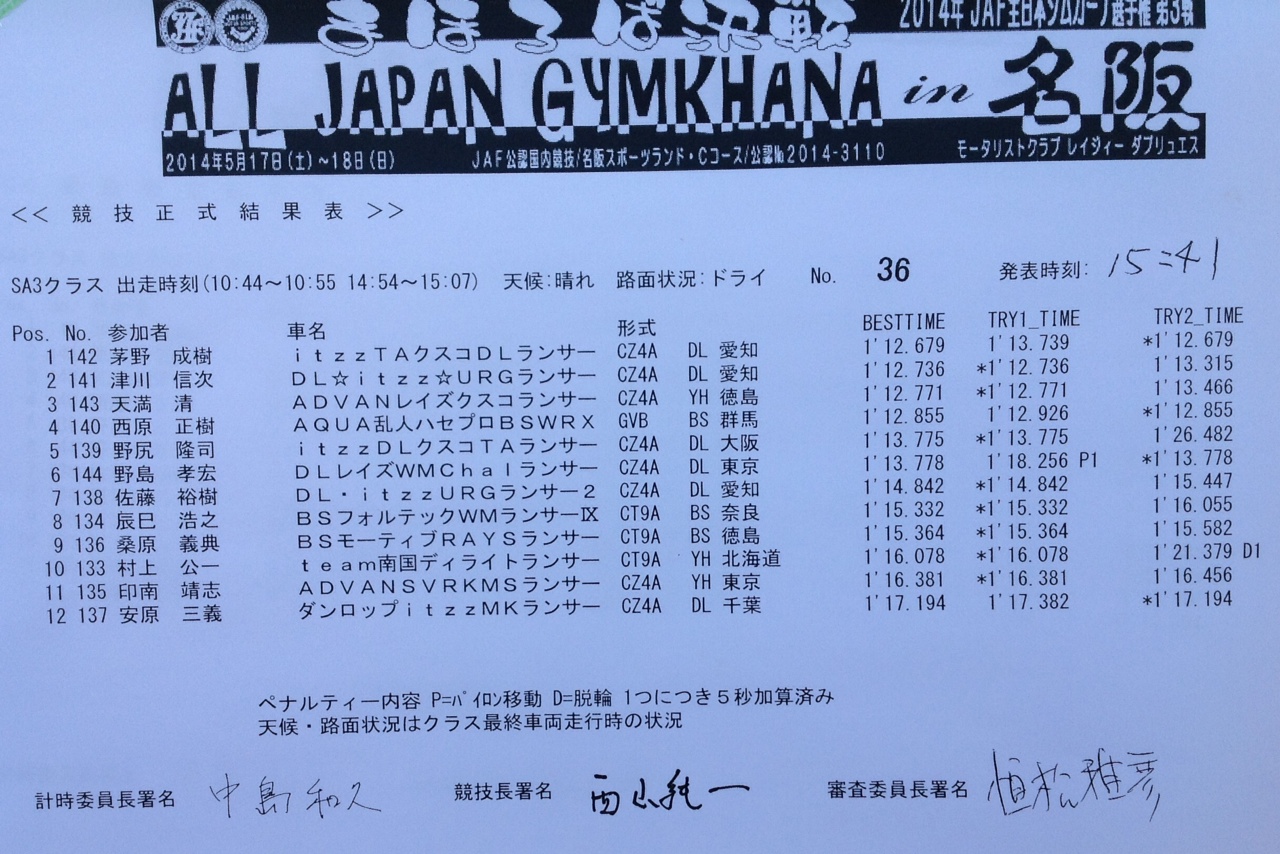 まほろば決戦 2014年 JAF全日本ジムカーナ選手権 第3戦
ALL JAPAN GYMKHANA in 名阪
2014年5月17日(土)～18日(日) JAF公認国内競技/名阪スポーツランド・Cコース/公認№2014-3110 モータリストクラブ レイジィー ダブリュエス
<< 競技正式結果表 >>
SA3クラス 出走時刻(10:44～10:55 14:54～15:07) 天候:晴れ 路面状況:ドライ No. 36 発表時刻: 15:41
Pos. No. 参加者 車名 形式 BESTTIME TRY1_TIME TRY2_TIME
1 142 茅野 成樹 ｉｔｚｚＴＡクスコＤＬランサー CZ4A DL 愛知 1'12.679 1'13.739 *1'12.679
2 141 津川 信次 ＤＬ☆ｉｔｚｚ☆ＵＲＧランサー CZ4A DL 愛知 1'12.736 *1'12.736 1'13.315
3 143 天満 清 ＡＤＶＡＮレイズクスコランサー CZ4A YH 徳島 1'12.771 *1'12.771 1'13.466
4 140 西原 正樹 ＡＱＵＡ乱人ハセプロＢＳＷＲＸ GVB BS 群馬 1'12.855 1'12.926 *1'12.855
5 139 野尻 隆司 ｉｔｚｚＤＬクスコＴＡランサー CZ4A DL 大阪 1'13.775 *1'13.775 1'26.482
6 144 野島 孝宏 ＤＬレイズＷＭＣｈａｌランサー CZ4A DL 東京 1'13.778 1'18.256 P1 *1'13.778
7 138 佐藤 裕樹 ＤＬ・ｉｔｚｚＵＲＧランサー２ CZ4A DL 愛知 1'14.842 *1'14.842 1'15.447
8 134 辰巳 浩之 ＢＳフォルテックＷＭランサーⅨ CT9A BS 奈良 1'15.332 *1'15.332 1'16.055
9 136 桑原 義典 ＢＳモーティブＲＡＹＳランサー CT9A BS 徳島 1'15.364 *1'15.364 1'15.582
10 133 村上 公一 ｔｅａｍ南国ディライトランサー CT9A YH 北海道 1'16.078 *1'16.078 1'21.379 D1
11 135 印南 靖志 ＡＤＶＡＮＳＶＲＫＭＳランサー CZ4A YH 東京 1'16.381 *1'16.381 1'16.456
12 137 安原 三義 ダンロップｉｔｚｚＭＫランサー CZ4A DL 千葉 1'17.194 1'17.382 *1'17.194
ペナルティー内容 P=ﾊﾟｲﾛﾝ移動 D=脱輪 1つにつき５秒加算済み
天候・路面状況はクラス最終車両走行時の状況
計時委員長署名 中島和久 競技長署名 西山純一 審査委員長署名 植松雅彦